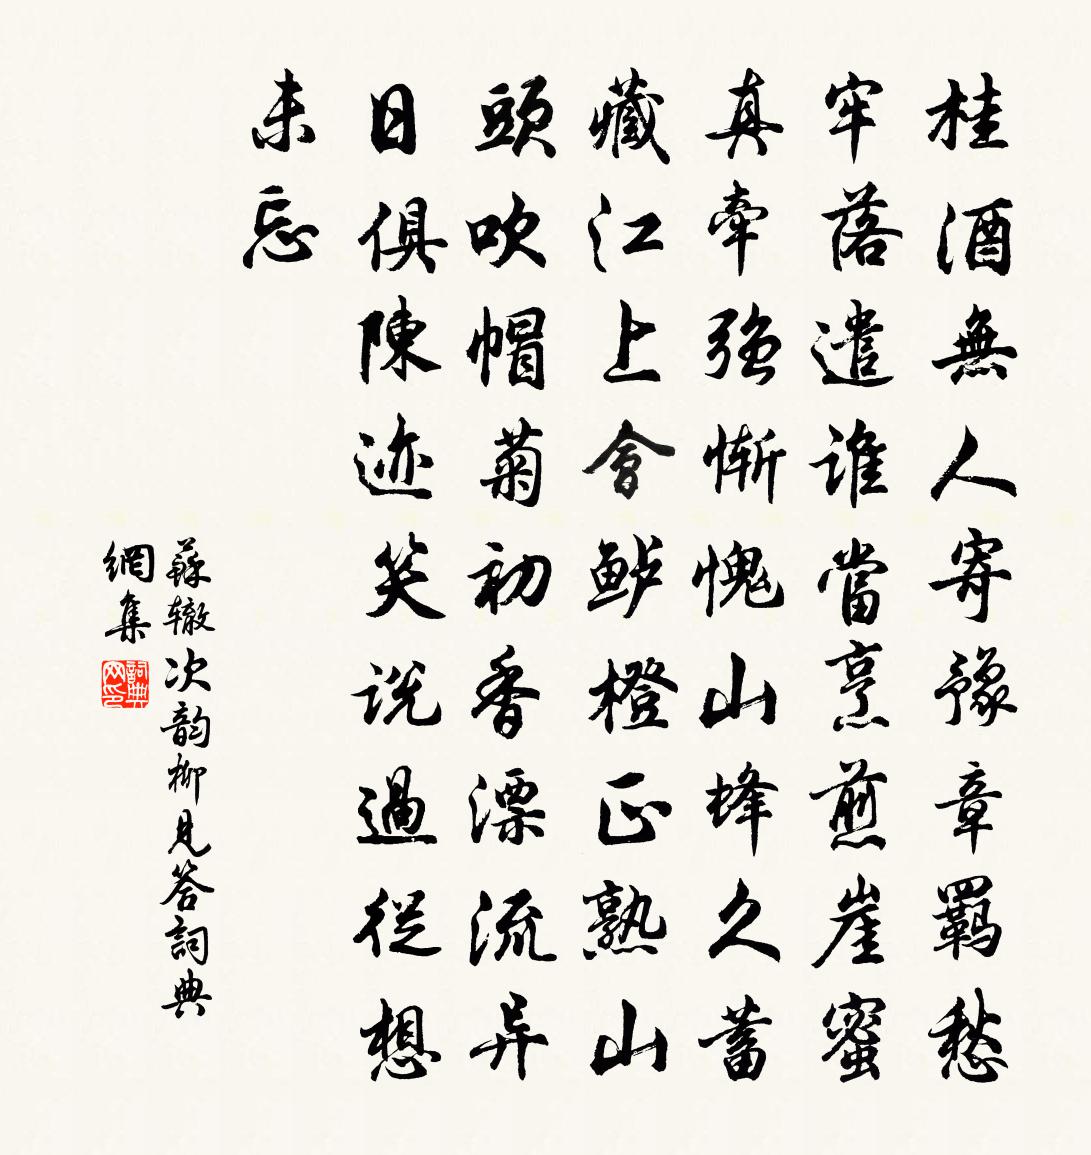 桂酒無人寄豫章羈愁
牢落遣誰當烹煎崖蜜
真牽强慚愧山蜂久蓄
藏江上會鲈橙正熟山
頭吹帽菊初香漂流异
日俱陳迹笑説過從想
未忘
蘇辙次韵柳見答詞典
網集
詞典网印